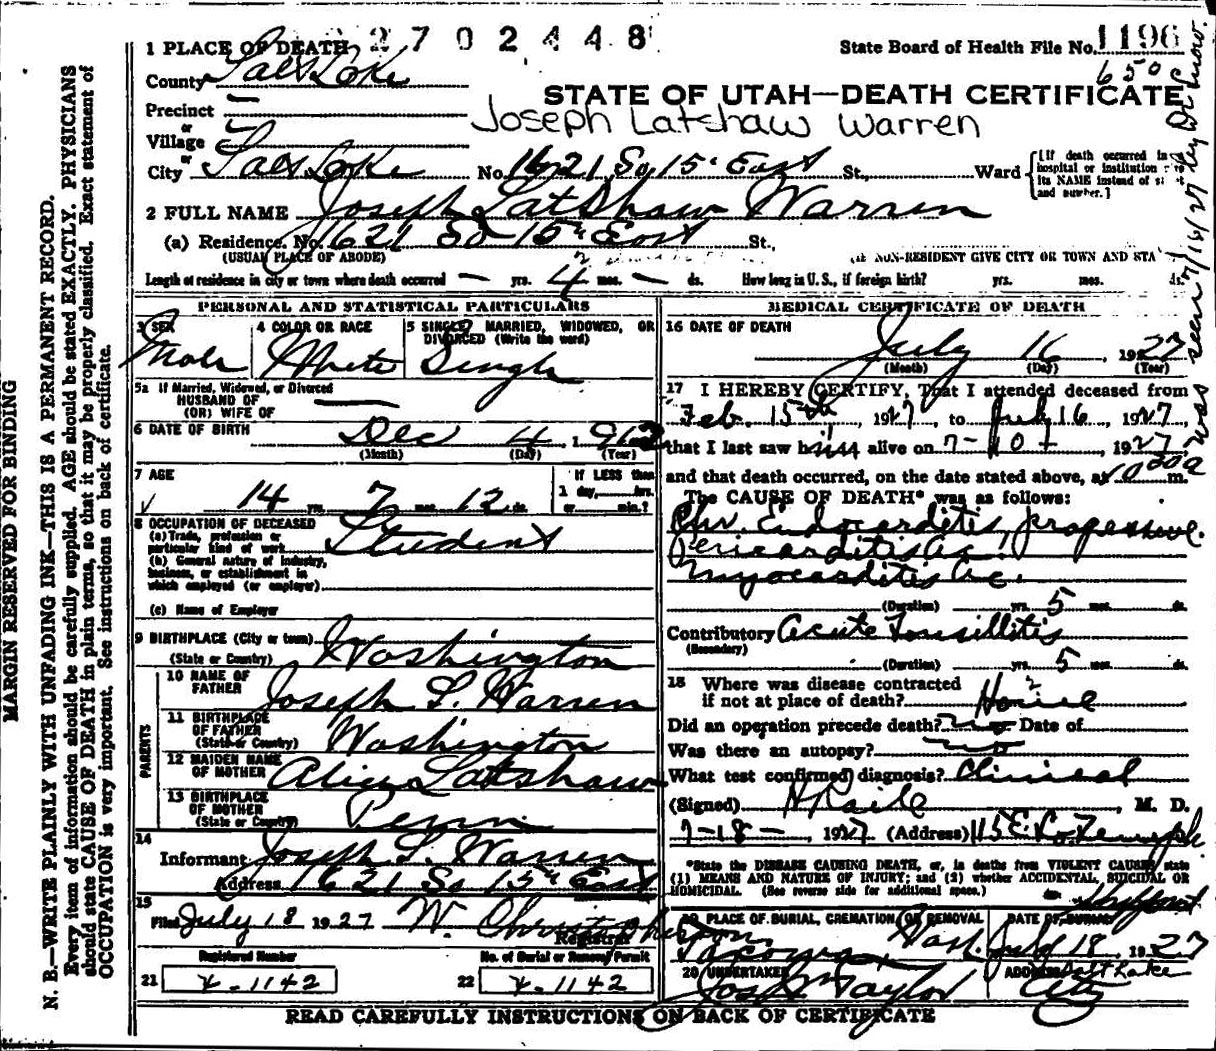 2702448
State Board of Health File No. 1196
650
1 PLACE OF DEATH
County Salt Lake
STATE OF UTAH—DEATH CERTIFICATE
Precinct
Joseph Latshaw Warren
or
Village
or
City Salt Lake No. 1621 So 15th East St., Ward
[If death occurred in
hospital or institution
its NAME instead of
and number.]
2 FULL NAME Joseph Latshaw Warren
(a) Residence. No. 1621 So 15th East St.,
(USUAL PLACE OF ABODE) (IF NON-RESIDENT GIVE CITY OR TOWN AND STA
Length of residence in city or town where death occurred — yrs. 4 mos. — ds. How long in U. S., if foreign birth? yrs. mos. ds.
PERSONAL AND STATISTICAL PARTICULARS
3 SEX 4 COLOR OR RACE 5 SINGLE, MARRIED, WIDOWED, OR
DIVORCED (Write the word)
Male White Single
5a If Married, Widowed, or Divorced
HUSBAND OF
(OR) WIFE OF
6 DATE OF BIRTH Dec 4, 1912
(Month) (Day) (Year)
7 AGE IF LESS than
14 yrs. 7 mos. 12 ds. 1 day, hrs.
or min.?
8 OCCUPATION OF DECEASED
(a) Trade, profession or
particular kind of work Student
(b) General nature of industry,
business, or establishment in
which employed (or employer)
(c) Name of Employer
9 BIRTHPLACE (City or town)
(State or Country) Washington
PARENTS
10 NAME OF
FATHER Joseph L. Warren
11 BIRTHPLACE
OF FATHER
(State or Country) Washington
12 MAIDEN NAME
OF MOTHER Alice Latshaw
13 BIRTHPLACE
OF MOTHER
(State or Country) Penn
14
Informant Joseph L. Warren
Address 1621 So 15th East
15
Filed July 18 1927 W. Christopherson
Registrar
Registered Number No. of Burial or Removal Permit
21 x-1142 22 x-1142
MEDICAL CERTIFICATE OF DEATH
16 DATE OF DEATH
July 16, 1927
(Month) (Day) (Year)
17 I HEREBY CERTIFY, That I attended deceased from
Feb. 15th, 1927, to July 16, 1927,
that I last saw him alive on 7-10+, 1927,
and that death occurred, on the date stated above, at 10 00a m.
The CAUSE OF DEATH* was as follows:
Chr. Endocarditis, progressive.
Pericarditis Ac.
Myocarditis Ac.
(Duration) yrs. 5 mos. ds.
Contributory Acute Tonsillitis
(Secondary)
(Duration) yrs. 5 mos. ds.
18 Where was disease contracted
if not at place of death? Home
Did an operation precede death? no Date of
Was there an autopsy? no
What test confirmed diagnosis? Clinical
(Signed) , M. D.
7-18-, 1927 (Address) 115 E. So. Temple
*State the DISEASE CAUSING DEATH, or, in deaths from VIOLENT CAUSES, state
(1) MEANS AND NATURE OF INJURY; and (2) whether ACCIDENTAL, SUICIDAL OR
HOMICIDAL. (See reverse side for additional space.)
19 PLACE OF BURIAL, CREMATION OR REMOVAL DATE OF BURIAL
Tacoma, Wash. July 18, 1927
20 UNDERTAKER ADDRESS
Jos. Wm Taylor Salt Lake
City
READ CAREFULLY INSTRUCTIONS ON BACK OF CERTIFICATE
MARGIN RESERVED FOR BINDING
N. B.—WRITE PLAINLY WITH UNFADING INK—THIS IS A PERMANENT RECORD.
Every item of information should be carefully supplied. AGE should be stated EXACTLY. PHYSICIANS
should state CAUSE OF DEATH in plain terms, so that it may be properly classified. Exact statement of
OCCUPATION is very important. See instructions on back of certificate.
was seen 7/16/27 by Dr Snow.